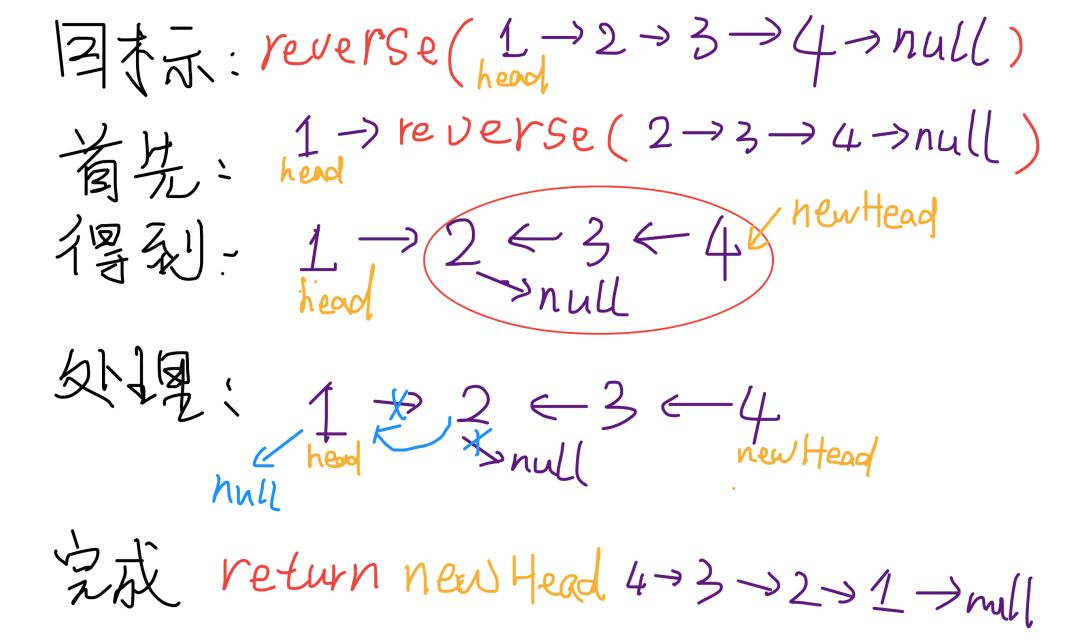 目标: reverse( 1 → 2 → 3 → 4 → null )
head
首先: 1 → reverse( 2 → 3 → 4 → null )
head
得到: 1 → 2 ← 3 ← 4 newHead
head → null
处理: 1 → 2 ← 3 ← 4
head → null newHead
null
完成 return newHead 4 → 3 → 2 → 1 → null